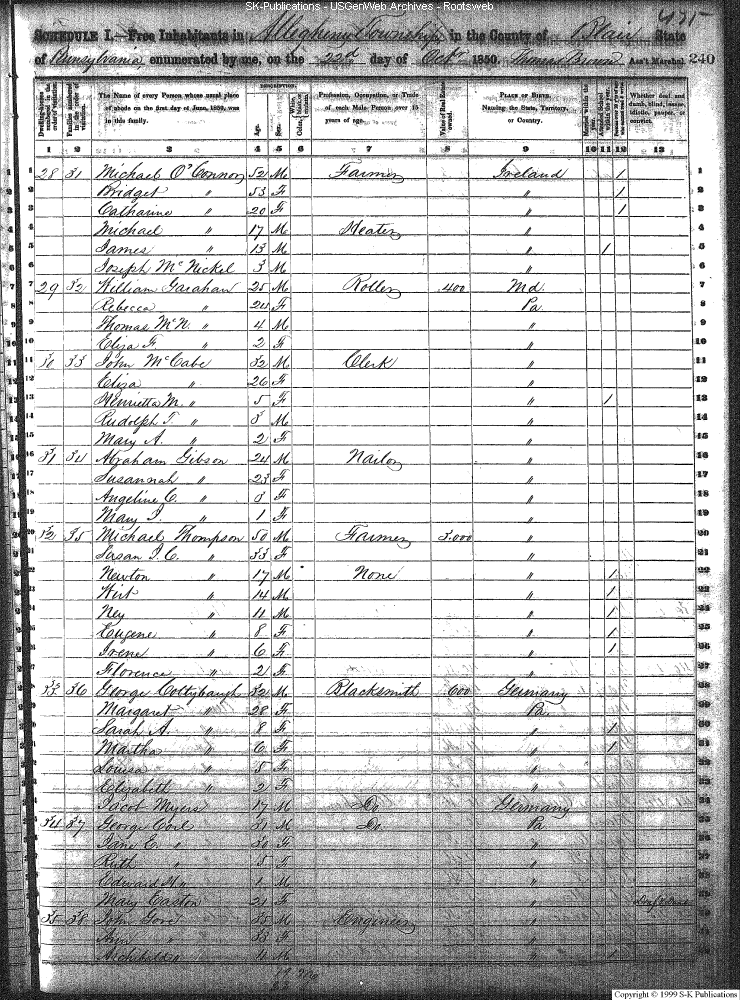 SK-Publications - USGenWeb Archives - Rootsweb
475
SCHEDULE I.—Free Inhabitants in Allegheny Township in the County of Blair State
of Pennsylvania enumerated by me, on the 22d day of Octr 1850. Thomas Brown Ass't Marshal 240
DESCRIPTION.
Dwelling-houses numbered in the order of visitation. Families numbered in the order of visitation. The Name of every Person whose usual place of abode on the first day of June, 1850, was in this family. Age. Sex. White, black, or mulatto. Color. Profession, Occupation, or Trade of each Male Person over 15 years of age. Value of Real Estate owned. PLACE OF BIRTH. Naming the State, Territory, or Country. Married within the year. Attended School within the year. Whether deaf and dumb, blind, insane, idiotic, pauper, or convict.
1 2 3 4 5 6 7 8 9 10 11 12 13
1 28 31 Michael O'Connor 52 M Farmer Ireland 1 1
2 Bridget " 53 F " 1 2
3 Catharine " 20 F " 1 3
4 Michael " 17 M Heater " 4
5 James " 13 M " 1 5
6 Joseph McNickel 3 M 6
7 29 32 William Garahan 25 M Roller 400 Md. 7
8 Rebecca " 24 F Pa 8
9 Thomas McN. " 4 M " 9
10 Eliza F. " 2 F " 10
11 30 33 John McCabe 32 M Clerk " 11
12 Eliza " 26 F " 12
13 Henrietta M. " 5 F " 1 13
14 Rudolph T. " 3 M " 14
15 Mary A. " 2 F " 15
16 31 34 Abraham Gibson 24 M Nailor " 16
17 Susannah " 23 F " 17
18 Angeline C. " 3 F " 18
19 Mary J. " 1 F " 19
20 32 35 Michael Thompson 50 M Farmer 3.000 " 20
21 Susan J. C. " 33 F " 21
22 Newton " 17 M None " 1 22
23 Wirt " 14 M " 1 23
24 Ney " 11 M " 1 24
25 Eugene " 8 F " 1 25
26 Irene " 6 F " 1 26
27 Florence " 2 F 27
28 33 36 George Coltybaugh 32 M Blacksmith 600 Germany 28
29 Margaret " 28 F Pa. 29
30 Sarah A. " 8 F " 1 30
31 Martha " 6 F " 1 31
32 Louisa " 5 F " 32
33 Elizabeth " 2 F " 33
34 Jacob Myers 17 M Do Germany 34
35 34 37 George Corl 31 M Do. Pa. 35
36 Jane E. " 30 F " 36
37 Ruth " 3 F " 37
38 Edward H " 1 M " 38
39 Mary Easton 21 F " Deaf & Dumb 39
40 35 38 John Gove 35 M Engineer " 40
41 Ann " 33 F " 41
42 Archibald " 4 M " 1 42
Copyright © 1999 S-K Publications